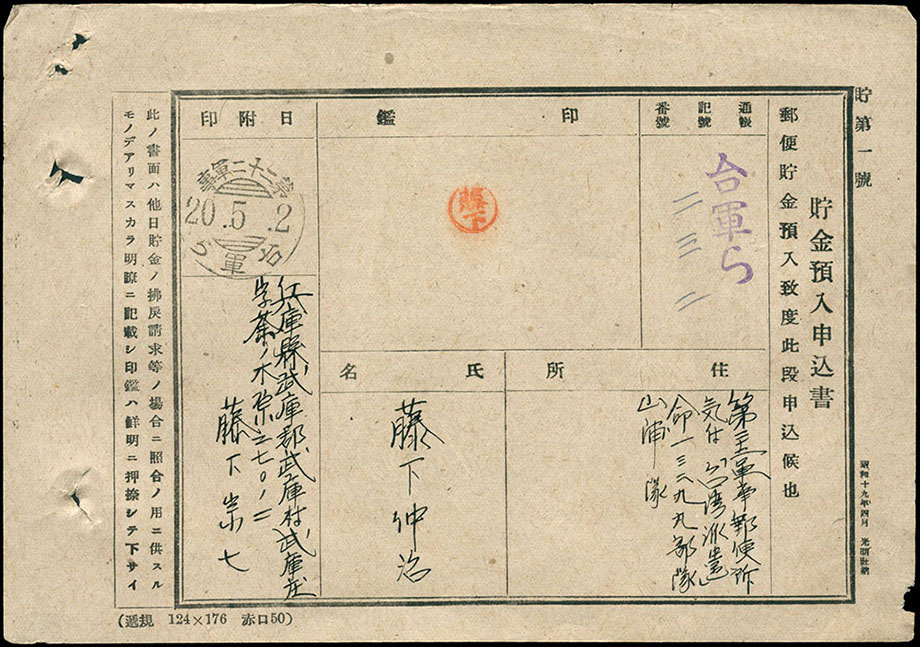 貯第一號
貯金預入申込書
昭和十九年四月
郵便貯金預入致度此段申込候也
通帳
記號
番號
台軍ら
二三二
印鑑
藤下
住所
軍事郵便所
気付 台湾派遣
部隊
山浦隊
氏名
藤下仲治
日附印
第二十二軍事
20.5.2
台軍ら
兵庫縣武庫郡武庫村武庫庄
字茶ノ木
藤下宗七
此ノ書面ハ他日貯金ノ拂戻請求等ノ場合ニ照合ノ用ニ供スル
モノデアリマスカラ明瞭ニ記載シ印鑑ハ鮮明ニ押捺シテ下サイ
(遞規 124×176 赤口50)